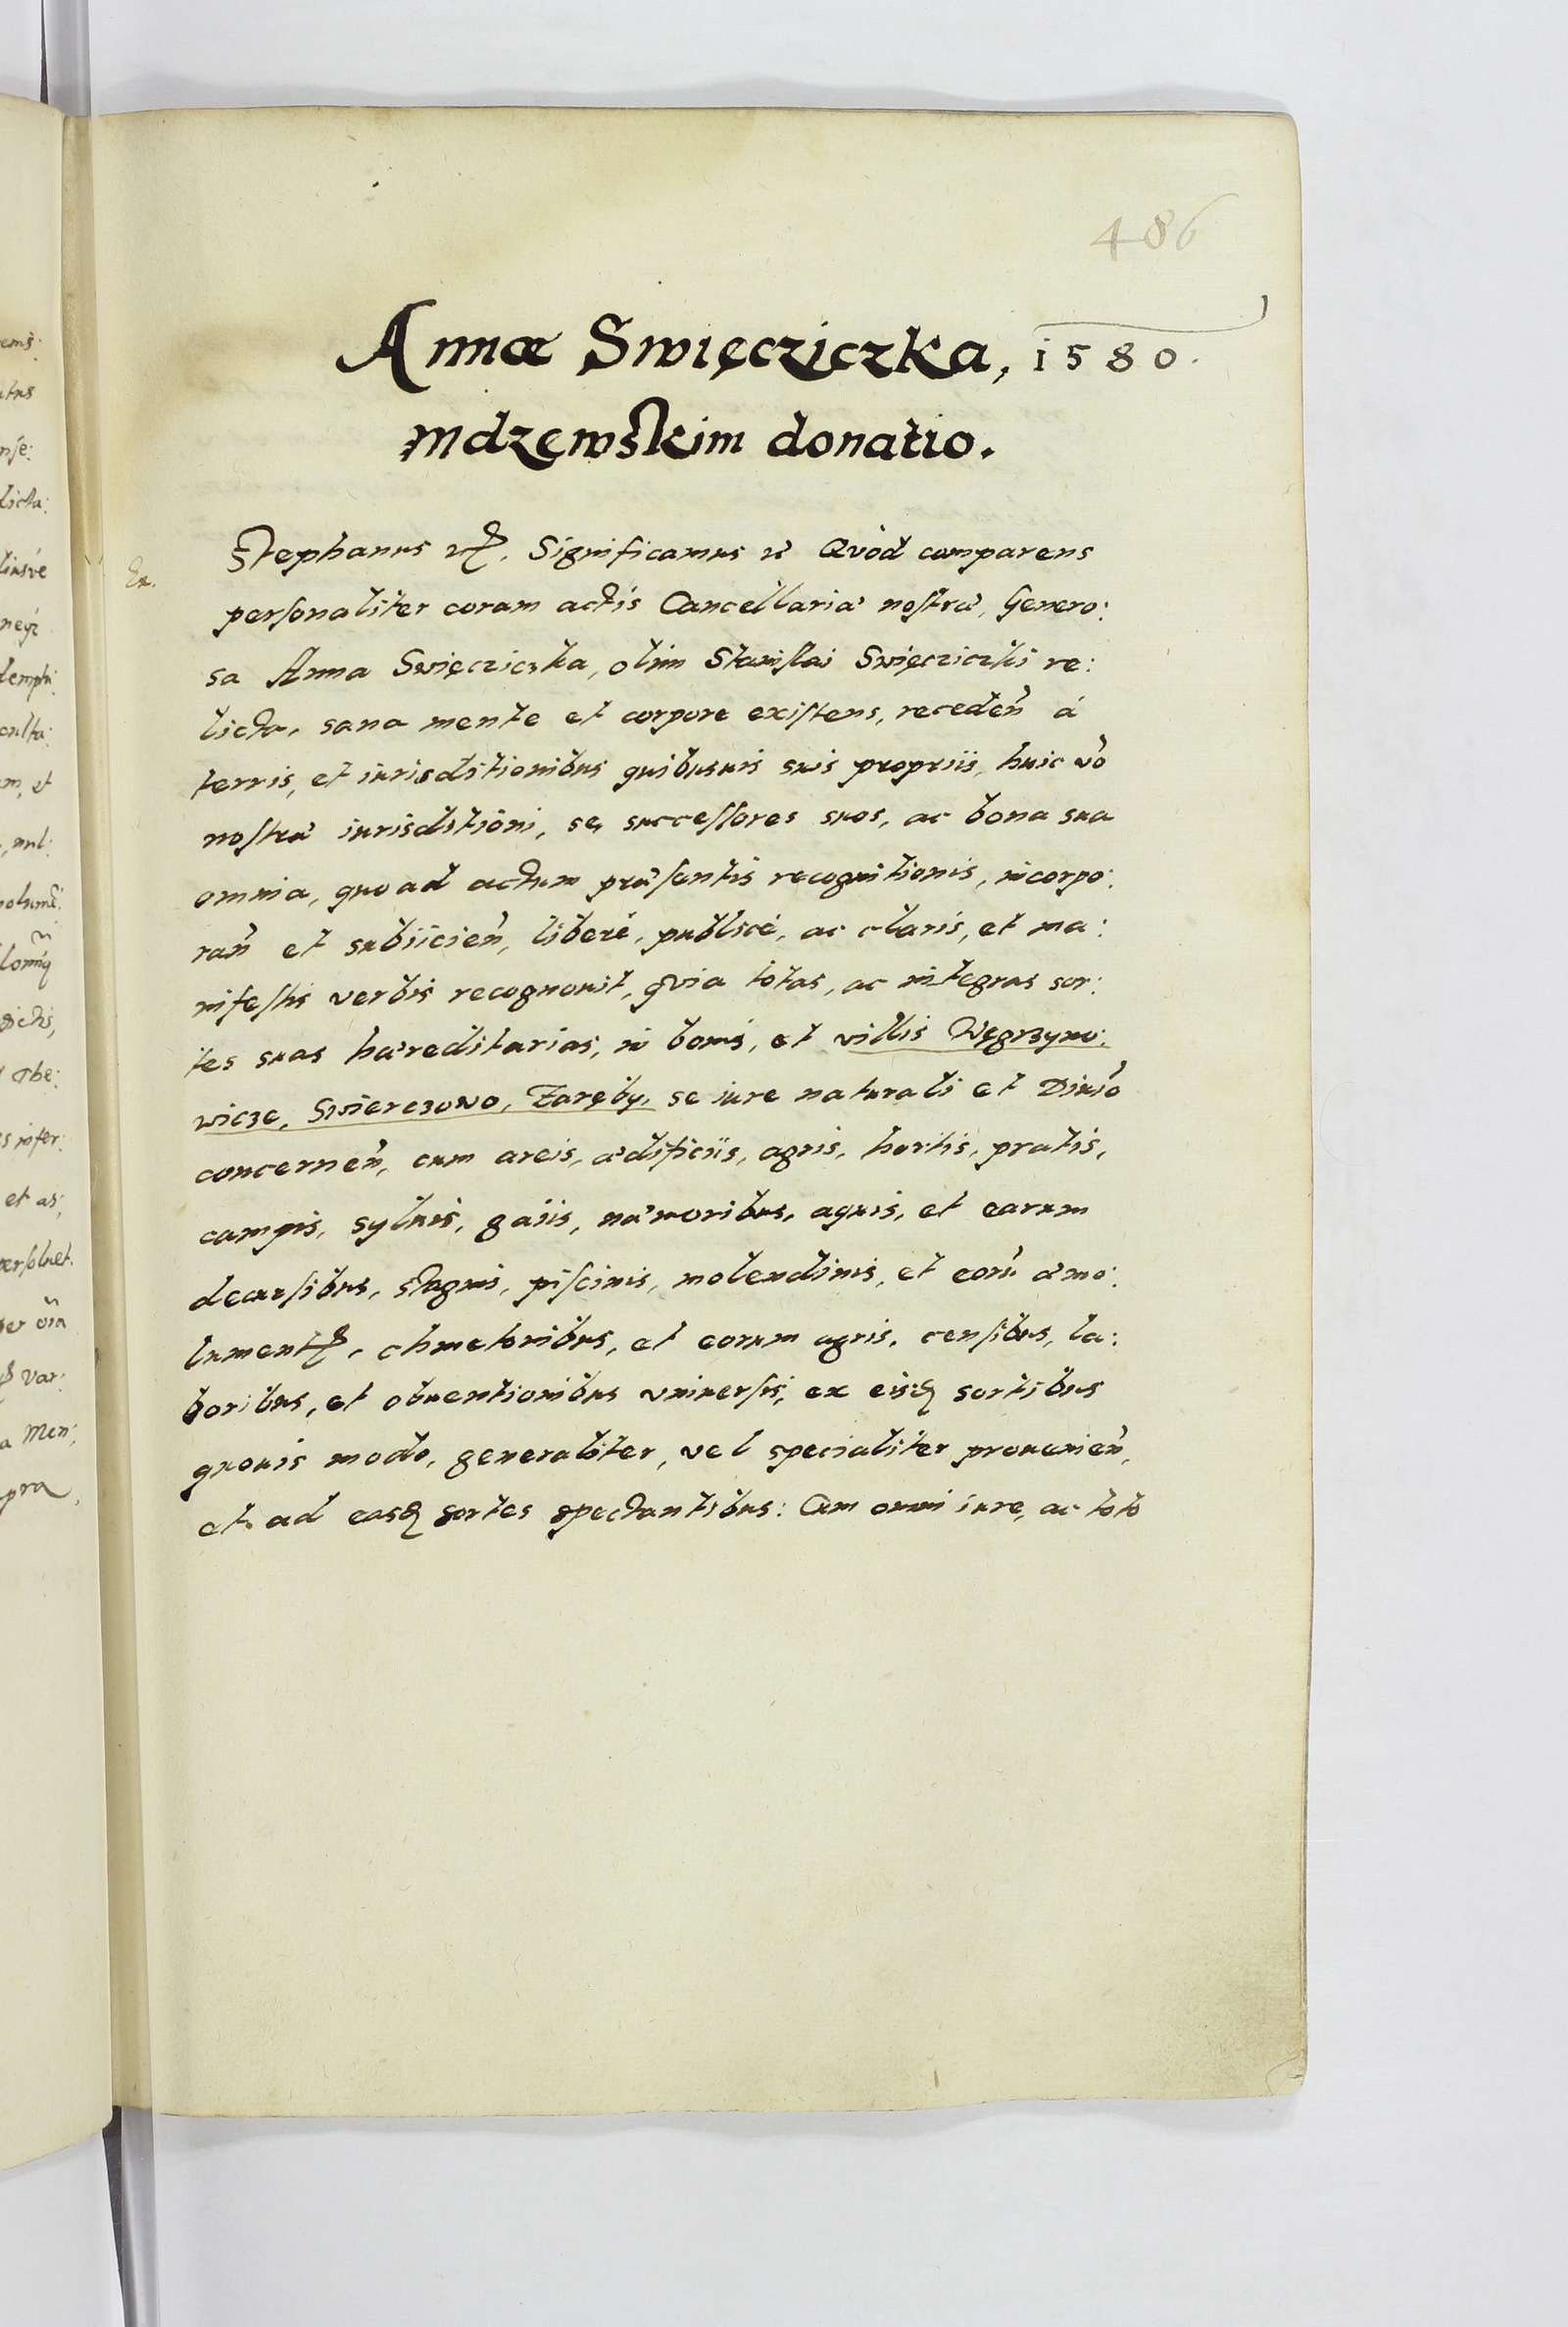 486
Annæ Swięcziczka, 1580.
Mdzewskim donatio.
Ex.
Stephanus etc. Significamus etc Qvòd comparens
personaliter coram actis Cancellariæ nostræ, Genero:
sa Anna Swięcziczka, olim Stanislai Swięcziczki re:
licta, sana mente et corpore existens, recedeñ à
terris, et iurisditionibus quibusuis suis propriis, huic v̄o
nostræ iurisditioni, se, successores suos, ac bona sua
omnia, quo ad actum præsentis recognitionis, incorpo:
rañ et subiicieñ, liberè, publicè, ac claris, et ma:
nifestis verbis recognouit, qvia totas, ac integras sor:
tes suas hæreditarias, in bonis, et villis Węgrzyno:
wicze, Swierczowo, Zaręby, se iure naturali et Diuīo
concerneñ, cum areis, ædificiis, agris, hortis, pratis,
campis, syluis, gaiis, næmoribus, aquis, et earum
decursibus, stagnis, piscinis, molendinis, et eorū æmo:
lument, chmetonibus, et eorum agris, censibus, la:
boribus, et obuentionibus vniuersis, ex eisq sortibus
quouis modo, generaliter, vel specialiter prouenieñ,
et ad easq sortes spectantibus: Cum omni iure, ac toto